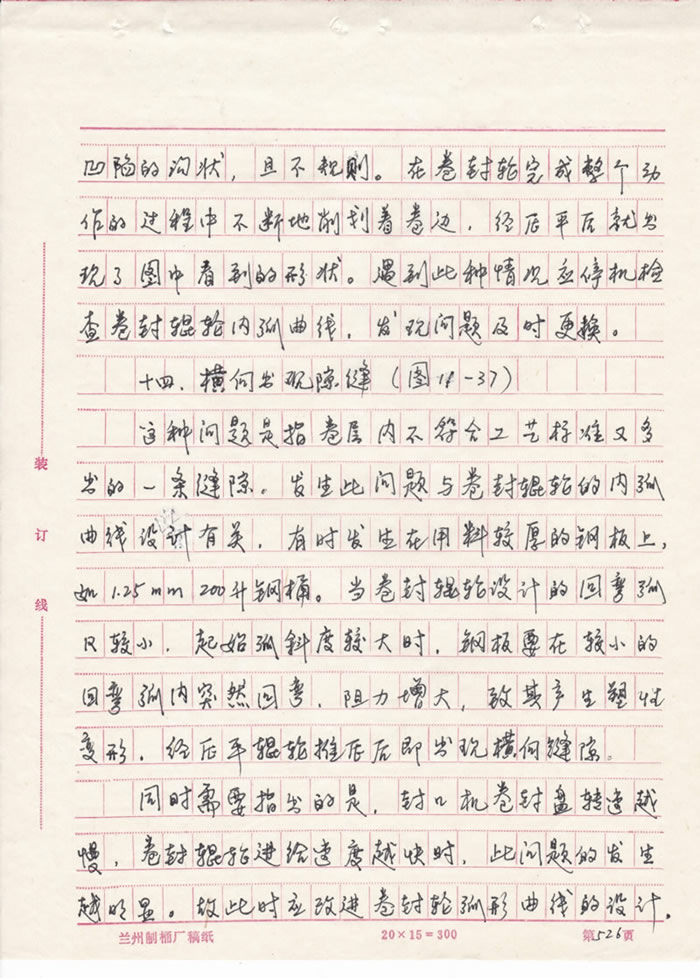 凹陷的沟状，且不规则。在卷封轮完成整个动
作的过程中不断地削划着卷边，经压平后就出
现了图中看到的形状。遇到此种情况应停机检
查卷封辊轮内弧曲线，发现问题及时更换。
十四、横向出现隙缝（图11-37）
这种问题是指卷层内不符合工艺标准又多
出的一条缝隙。发生此问题与卷封辊轮的内弧
曲线设计有关，有时发生在用料较厚的钢板上，
如1.25mm 200升钢桶。当卷封辊轮设计的回弯弧
R较小，起始弧斜度较大时，钢板要在较小的
回弯弧内突然回弯，阻力增大，致其产生塑性
变形，经压平辊轮推压后即出现横向缝隙。
同时需要指出的是，封口机卷封盘转速越
慢，卷封辊轮进给速度越快时，此问题的发生
越明显。故此时应改进卷封轮弧形曲线的设计，
装
订
线
兰州制桶厂稿纸 20×15=300 第526页